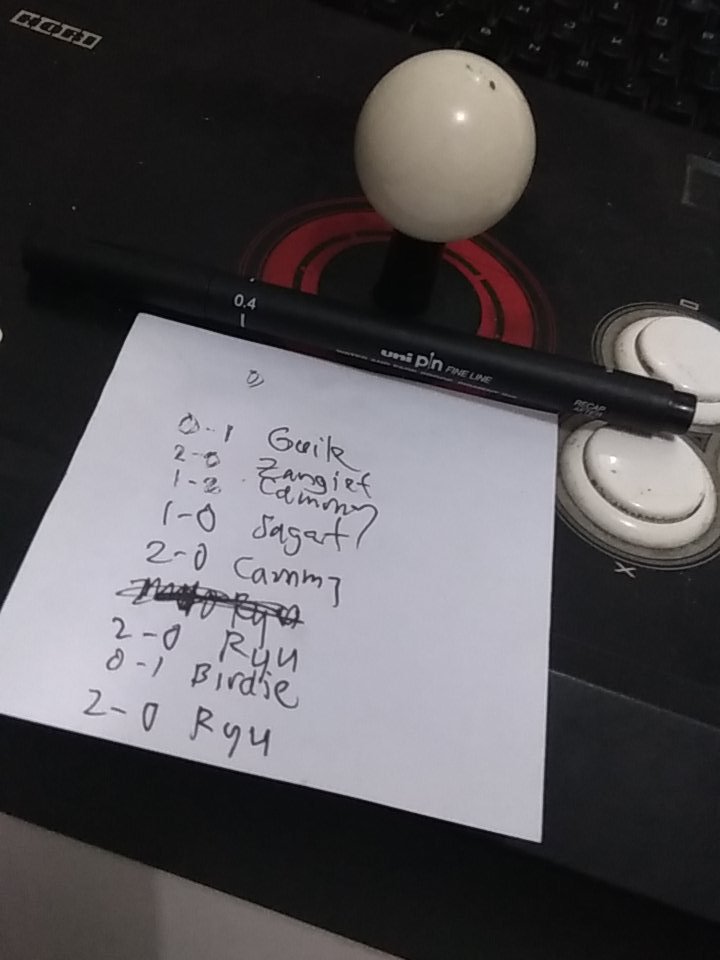 HORI
0.4
uni pin FINE LINE
0-1 Guile
2-0 Zangief
1-2 Cammy
1-0 Sagat
2-0 Cammy
Ryu
2-0 Ryu
0-1 Birdie
2-0 Ryu
X